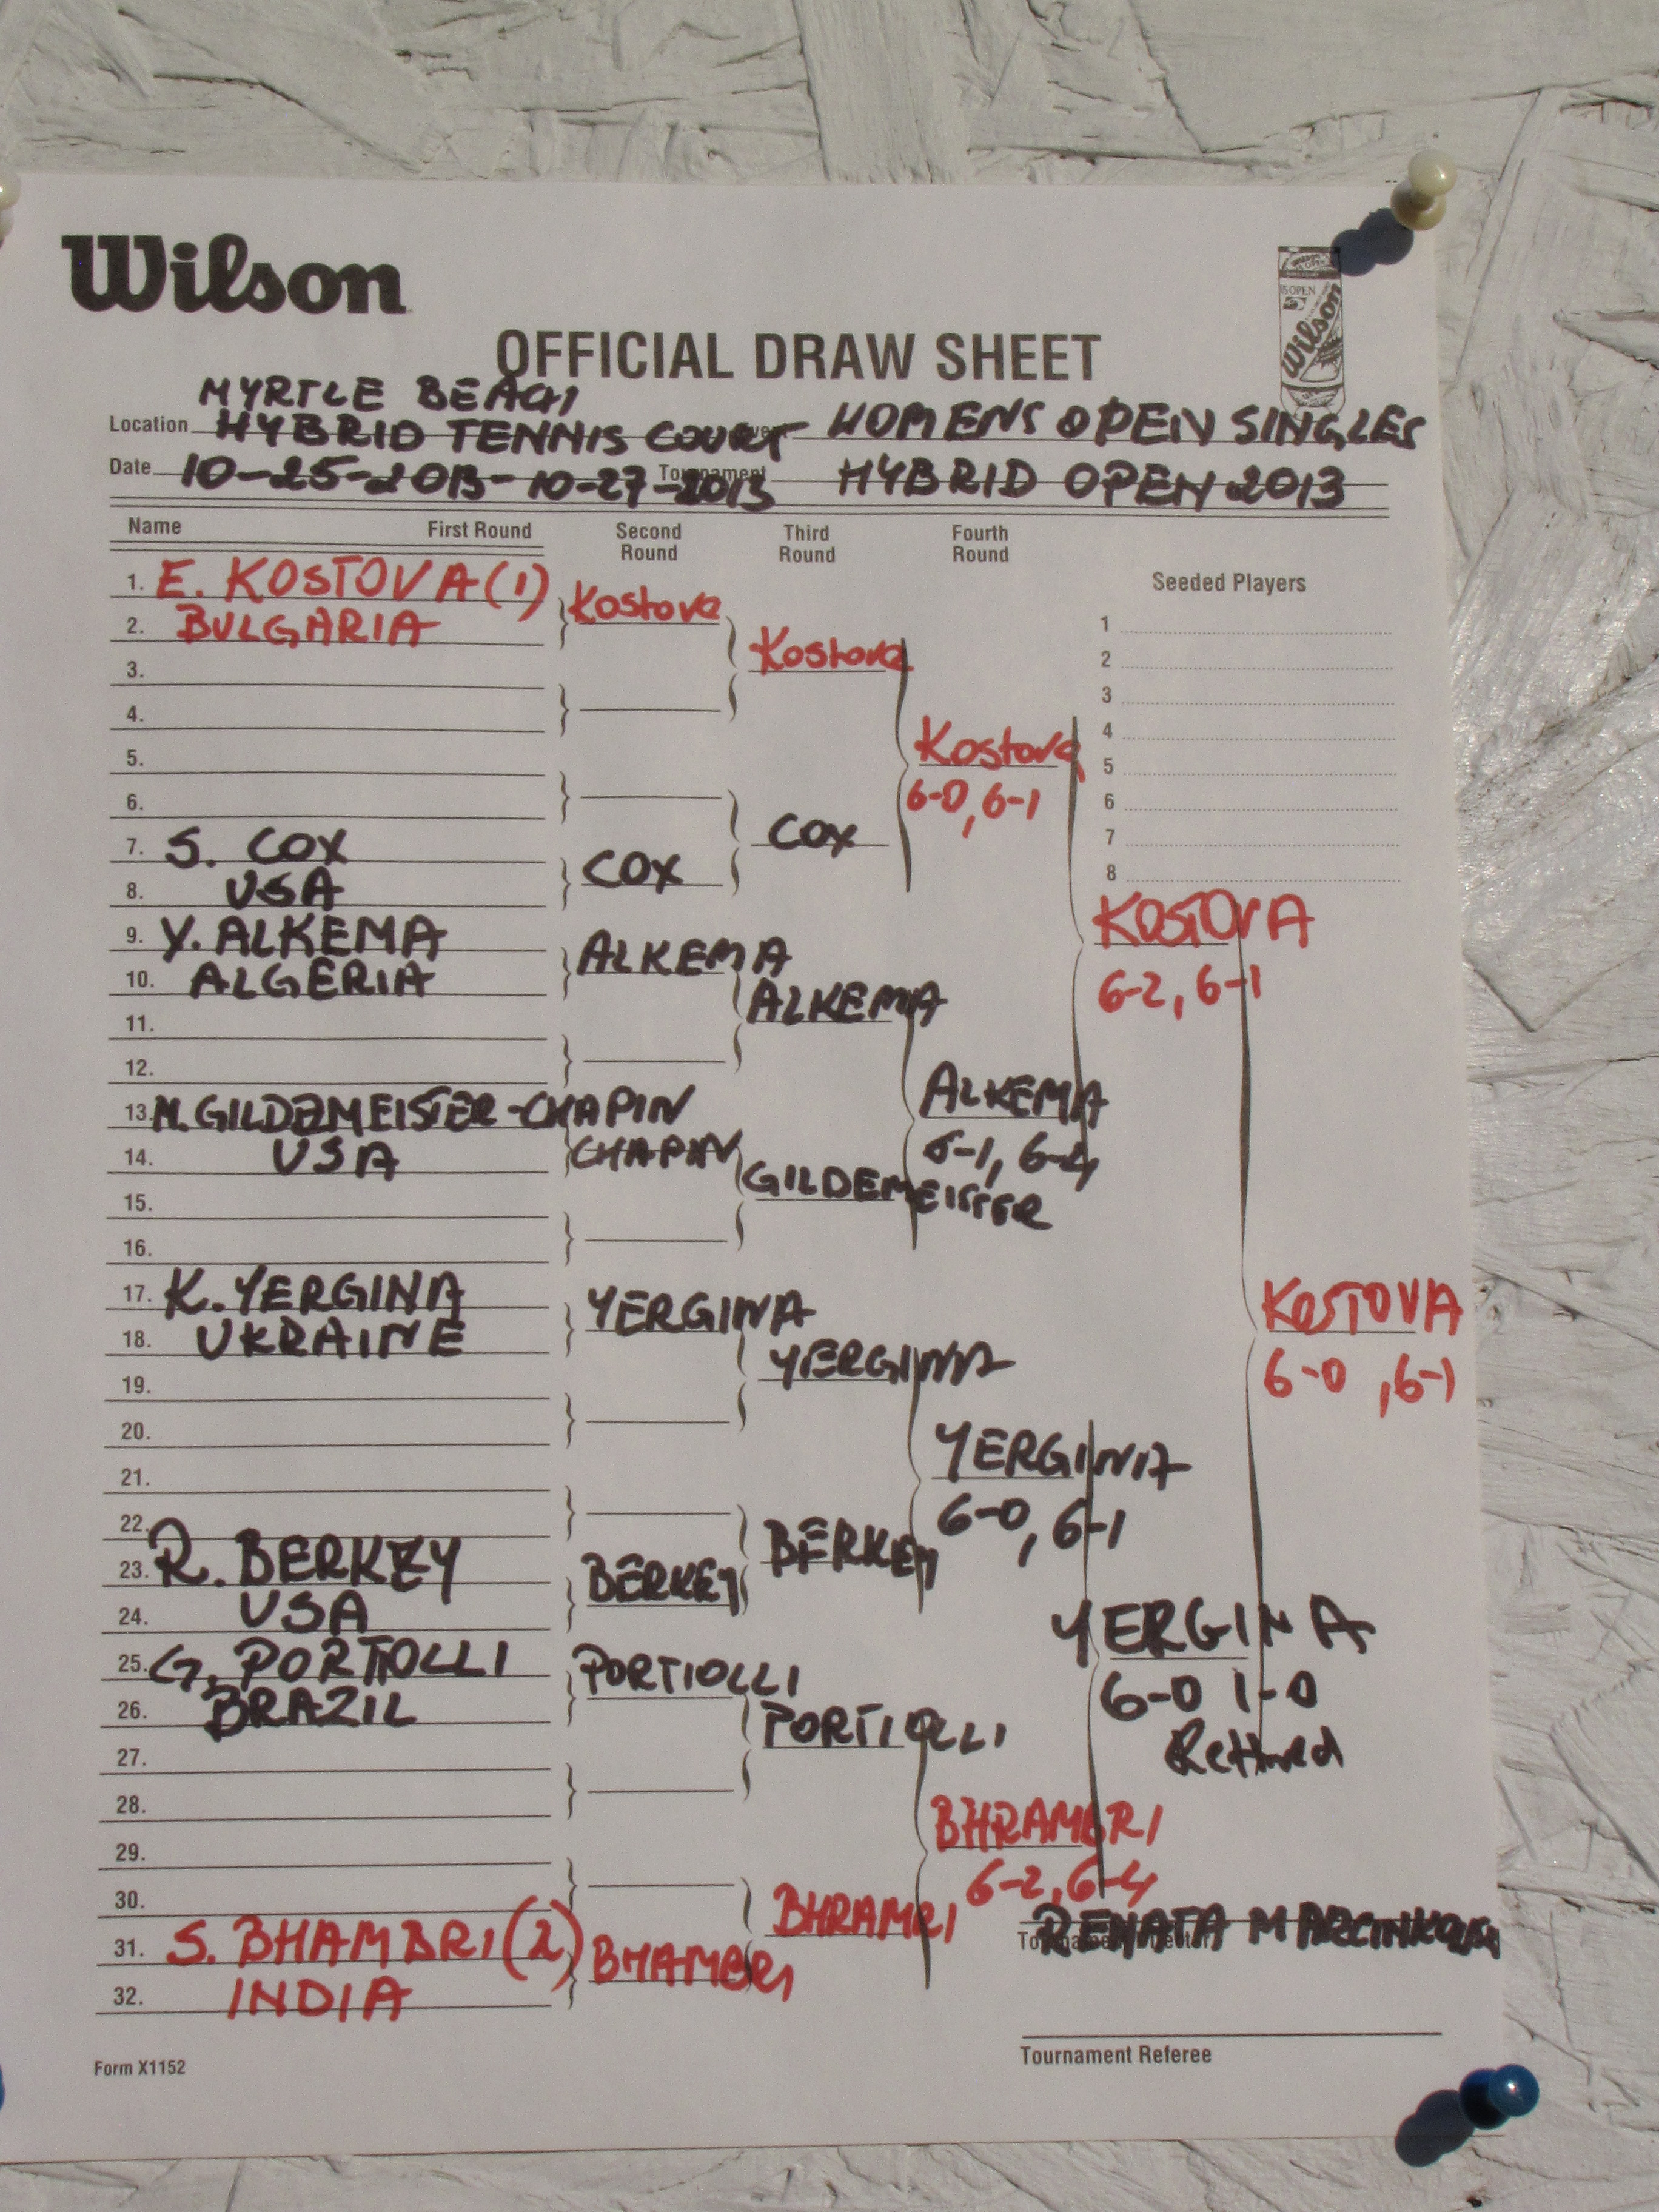 Wilson
US OPEN
Wilson
OFFICIAL DRAW SHEET
MYRTLE BEACH
Location HYBRID TENNIS COURT WOMENS OPEN SINGLES
Date 10-25-2013 - 10-27-2013 Tournament HYBRID OPEN 2013
Name First Round Second Round Third Round Fourth Round
Seeded Players
1
2
3
4
5
6
7
8
1. E. KOSTOVA (1)
2. BULGARIA
3.
4.
5.
6.
7. S. COX
8. USA
9. Y. ALKEMA
10. ALGERIA
11.
12.
13. M. GILDEMEISTER-CHAPIN
14. USA
15.
16.
17. K. YERGINA
18. UKRAINE
19.
20.
21.
22.
23. R. BERKEY
24. USA
25. G. PORTIOLLI
26. BRAZIL
27.
28.
29.
30.
31. S. BHAMBRI (2)
32. INDIA
Kostova
COX
ALKEMA
CHAPIN
YERGINA
BERKEY
PORTIOLLI
BHAMBRI
Kostova
COX
ALKEMA
GILDEMEISTER
YERGINA
BERKEY
PORTIOLLI
BHRAMRI
Kostova
6-0, 6-1
ALKEMA
6-1, 6-4
YERGINA
6-0, 6-1
BHRAMBRI
6-2, 6-4
KOSTOVA
6-2, 6-1
YERGINA
6-0 1-0
Retired
KOSTOVA
6-0, 6-1
RENATA
Tournament Director
Tournament Referee
Form X1152